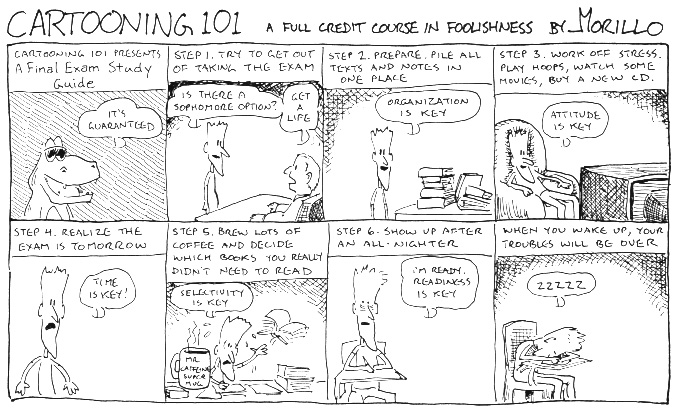 CARTOONING 101 A FULL CREDIT COURSE IN FOOLISHNESS BY MORILLO
CARTOONING 101 PRESENTS
A Final Exam Study
Guide
IT'S
GUARANTEED
STEP 1. TRY TO GET OUT
OF TAKING THE EXAM
IS THERE A
SOPHOMORE OPTION?
GET
A
LIFE
STEP 2. PREPARE. PILE ALL
TEXTS AND NOTES IN
ONE PLACE
ORGANIZATION
IS KEY
STEP 3. WORK OFF STRESS.
PLAY HOOPS, WATCH SOME
MOVIES, BUY A NEW CD.
ATTITUDE
IS KEY
STEP 4. REALIZE THE
EXAM IS TOMORROW
TIME
IS KEY!
STEP 5. BREW LOTS OF
COFFEE AND DECIDE
WHICH BOOKS YOU REALLY
DIDN'T NEED TO READ
SELECTIVITY
IS KEY
MR.
CAFFEINE
SUPER
MUG
STEP 6. SHOW UP AFTER
AN ALL-NIGHTER
I'M READY.
READINESS
IS KEY
WHEN YOU WAKE UP, YOUR
TROUBLES WILL BE OVER
ZZZZZ